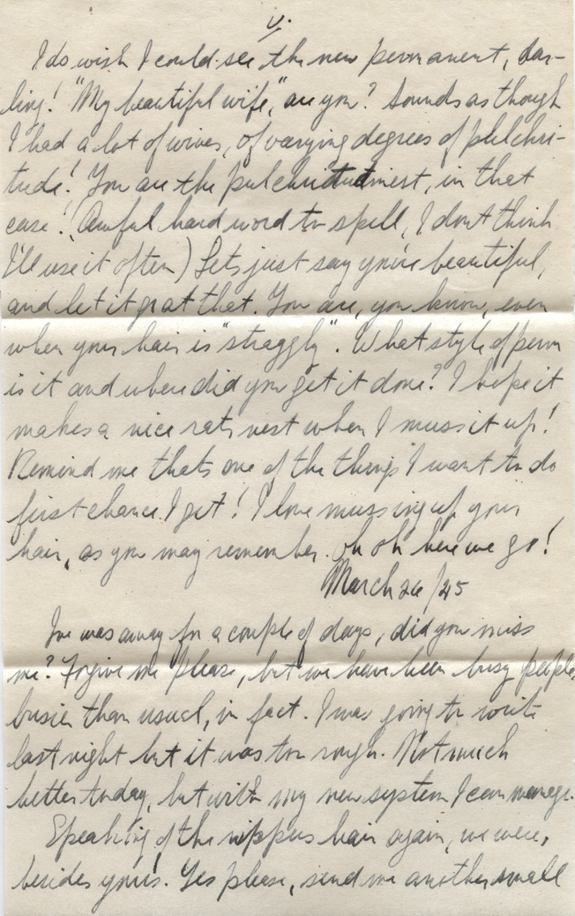 V.
I do wish I could see the new permanent, dar-
ling! "My beautiful wife," are you? Sounds as though
I had a lot of wives, of varying degrees of pulchri-
tude! You are the pulchritudiniest, in that
case! (Awful hard word to spell, I dont think
I'll use it often) Lets just say you're beautiful,
and let it go at that. You are, you know, even
when your hair is "straggly". What style of perm
is it and where did you get it done? I hope it
makes a nice rats nest when I muss it up!
Remind me thats one of the things I want to do
first chance I get! I love mussing up your
hair, as you may remember. oh oh here we go!
March 26/45
I was away for a couple of days, did you miss
me? Forgive me please, but we have been busy people,
busier than usual, in fact. I was going to write
last night but it was too rough. Not much
better today, but with my new system I can manage.
Speaking of the nippers hair again, we were,
besides yours. Yes please, send me another small